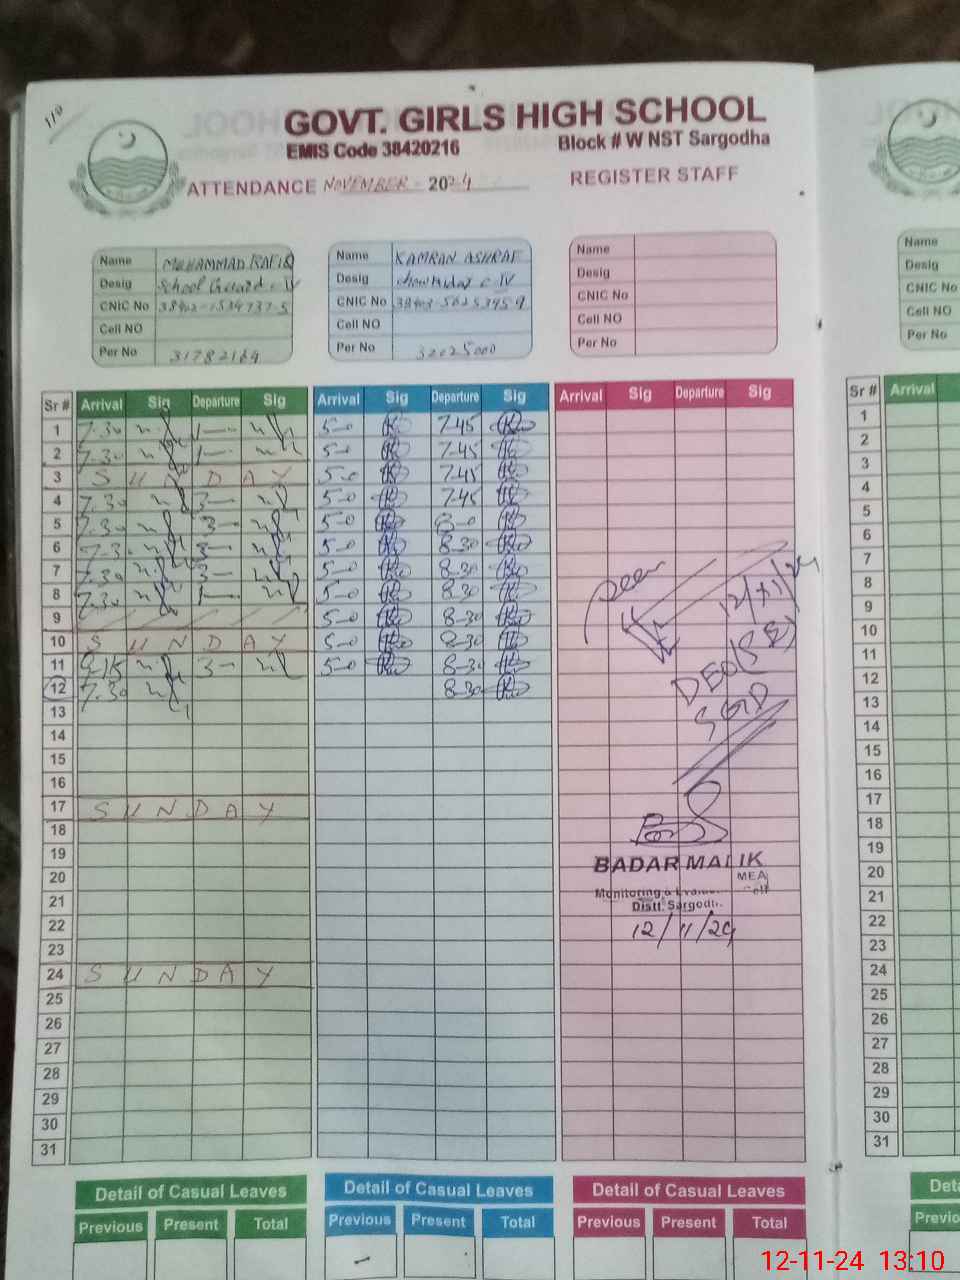 110
GOVT. GIRLS HIGH SCHOOL
EMIS Code 38420216 Block # W NST Sargodha
ATTENDANCE NOVEMBER - 2024 REGISTER STAFF
Name MUHAMMAD RAFIQ Name KAMRAN ASHRAF Name Name
Desig School Guard - IV Desig Chowkidar C-IV Desig Desig
CNIC No CNIC No CNIC No CNIC No
Cell NO Cell NO Cell NO Cell NO
Per No 31782169 Per No 32025000 Per No Per No
Sr # Arrival Sig Departure Sig Arrival Sig Departure Sig Arrival Sig Departure Sig Sr # Arrival
1 7.30 1— 5-0 7-45 1
2 7.30 1— 5-0 7-45 2
3 SUNDAY 5-0 7-45 3
4 7.30 3— 5-0 7-45 4
5 7.30 3— 5-0 8-0 5
6 7.30 3— 5-0 8-30 6
7 7.30 3— 5-0 8-30 7
8 7.30 1— 5-0 8-30 8
9 5-0 8-30 9
10 SUNDAY 5-0 8-30 10
11 8-15 3— 5-0 8-30 11
12 7.30 8-30 12
13 13
14 14
15 15
16 16
17 SUNDAY 17
18 18
19 19
20 20
21 21
22 22
23 23
24 SUNDAY 24
25 25
26 26
27 27
28 28
29 29
30 30
31 31
Seen
12/XI/24
DEO (SE)
SGD
BADAR MALIK
MEA
Monitoring & Cell
Distt. Sargodha
12/11/24
Detail of Casual Leaves Detail of Casual Leaves Detail of Casual Leaves Det
Previous Present Total Previous Present Total Previous Present Total Previo
12-11-24 13:10